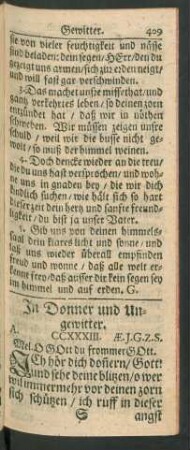 Gewitter. 409
sie von vieler feuchtigkeit und nässe
sind beladen: dein segen / HErr / den du
gezeigt uns armen / sich zur erden neigt /
und will fast gar verschwinden.
3. Das machet unsre missethat / und
gantz verkehrtes leben / so deinen zorn
entzündet hat / daß wir in nöthen
schweben. Wir müssen zeigen unsre
schuld / weil wir die busse nicht ge-
wolt / so muß der himmel weinen.
4. Doch dencke wieder an die treu /
die du uns hast versprochen / und woh-
ne uns in gnaden bey / die wir dich
kindlich suchen / wie hält sich so hart
dieser zeit dein hertz und sanfte freund-
ligkeit / du bist ja unser Vater.
5. Gib uns von deinen himmels-
saal dein klares licht und sonne / und
laß uns wieder überall empfinden
freud und wonne / daß alle welt er-
kenne frey / daß ausser dir kein segen sey
im himmel und auf erden. G.
In Donner und Un-
gewitter.
A. CCXXXIII. Æ.J.G.Z.S.
Mel. O GOtt du frommer GOtt.
ICh hör dich donnern / Gott!
und sehe deine blitzen / o wer
wil immermehr vor deinen zorn
sich schützen / ich ruff in dieser
S angst